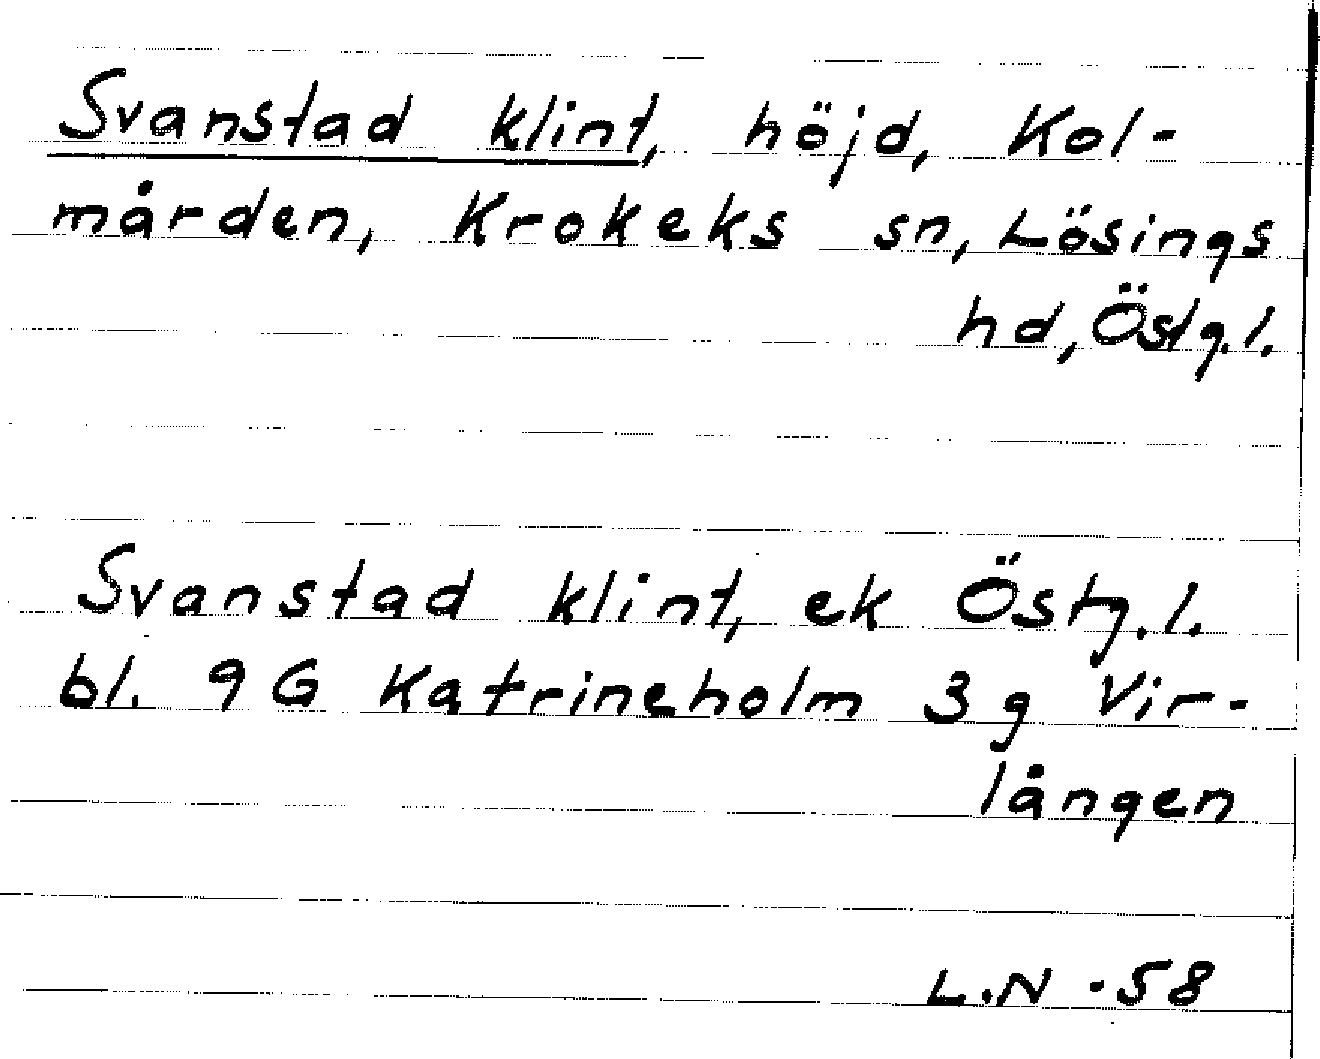 Svanstad klint, höjd, Kol-
mården, Krokeks sn, Lösings
hd, Östg.l.
Svanstad klint, ek Östg.l.
bl. 9 G Katrineholm 3 g Vir-
lången
L.N -58